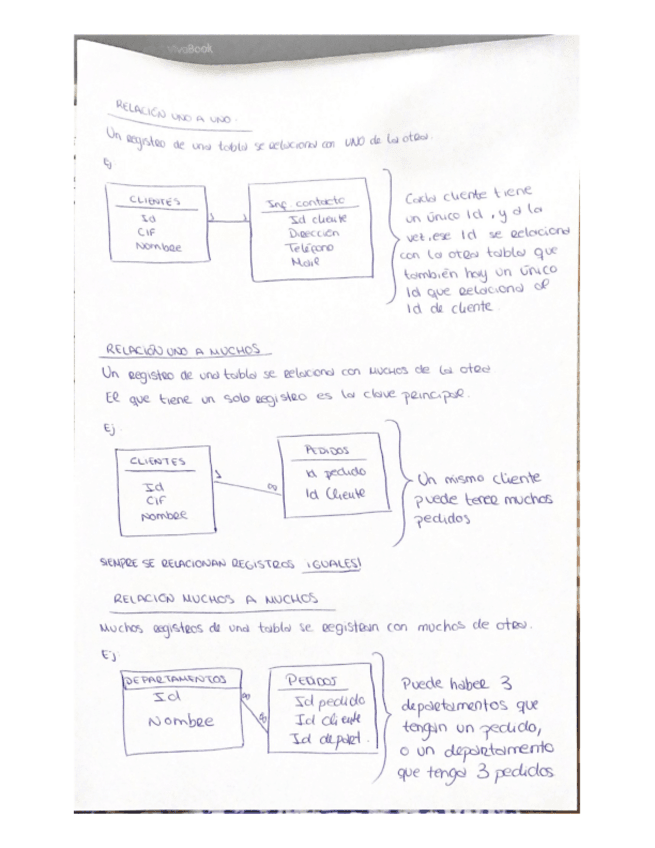 VivoBook
RELACIÓN UNO A UNO.
Un registro de una tabla se relaciona con UNO de la otra.
Ej
CLIENTES
Id
CIF
Nombre
1 1
Inf. contacto
Id cliente
Dirección
Teléfono
Mail
Cada cliente tiene
un único Id, y a la
vez, ese Id se relaciona
con la otra tabla que
también hay un único
Id que relaciona el
Id de cliente.
RELACIÓN UNO A MUCHOS
Un registro de una tabla se relaciona con MUCHOS de la otra
El que tiene un solo registro es la clave principal.
Ej.
CLIENTES
Id
CIF
Nombre
1 ∞
PEDIDOS
Id pedido
Id Cliente
Un mismo cliente
puede tener muchos
pedidos
SIEMPRE SE RELACIONAN REGISTROS IGUALES!
RELACIÓN MUCHOS A MUCHOS
Muchos registros de una tabla se registran con muchos de otra.
Ej.
DEPARTAMENTOS
Id
Nombre
∞ ∞
PEDIDOS
Id pedido
Id cliente
Id depart.
Puede haber 3
departamentos que
tengan un pedido,
o un departamento
que tenga 3 pedidos